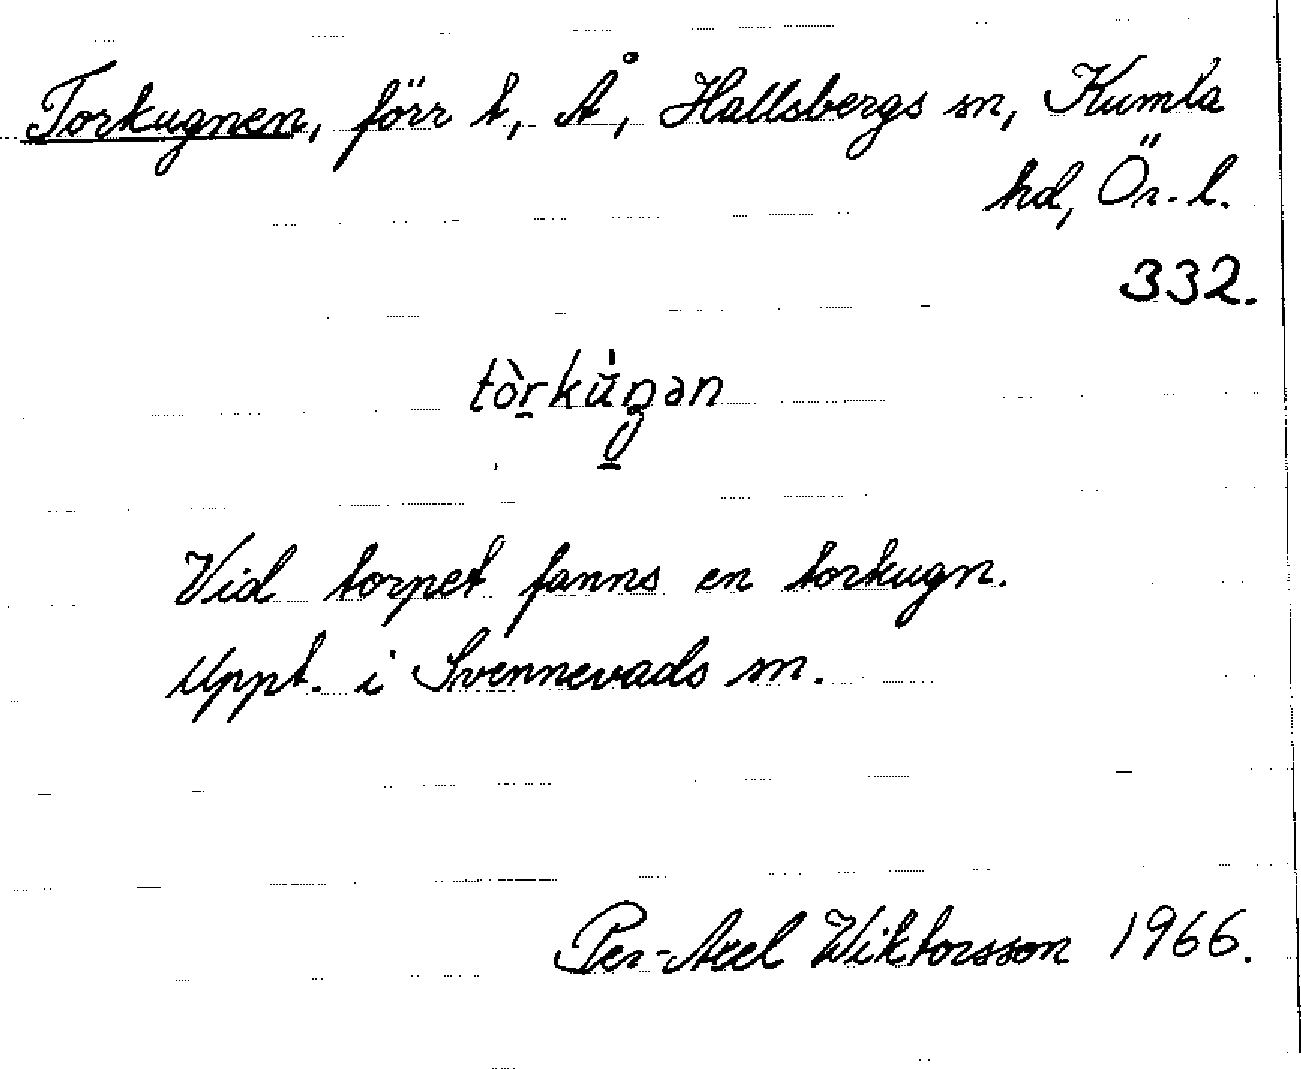 Torkugnen, förr t, Å, Hallsbergs sn, Kumla
hd, Ör. l.
332.
Vid torpet fanns en torkugn.
Uppt. i Svennevads sn.
Per-Axel Wiktorsson 1966.